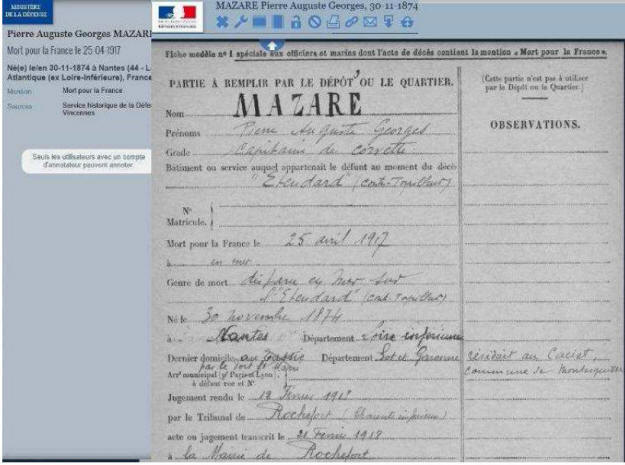 MINISTÈRE
DE LA DÉFENSE
Pierre Auguste Georges MAZARE
Mort pour la France le 25-04-1917
Né(e) le/en 30-11-1874 à Nantes (44 - L
Atlantique (ex Loire-Inférieure), France
Mention Mort pour la France
Sources Service historique de la Défe
Vincennes
Seuls les utilisateurs avec un compte
d'annotateur peuvent annoter.
MAZARE Pierre Auguste Georges, 30-11-1874
Fiche modèle nº 1 spéciale aux officiers et marins dont l'acte de décès contient la mention « Mort pour la France ».
PARTIE À REMPLIR PAR LE DÉPÔT OU LE QUARTIER.
(Cette partie n'est pas à utiliser
par le Dépôt ou le Quartier.)
OBSERVATIONS.
Nom MAZARE
Prénoms Pierre Auguste Georges
Grade Capitaine de corvette
Bâtiment ou service auquel appartenait le défunt au moment du décès
"Etendard" (contre-Torpilleur)
Nº
Matricule.
Mort pour la France le 25 avril 1917
à en mer
Genre de mort disparu en mer sur
l'"Etendard" (Torpilleur)
Né le 30 novembre 1874
à Nantes Département Loire inférieure
Dernier domicile au Département Lot et Garonne résidait au
par le Port Ste Marie commune de
Arrt municipal (pr Paris et Lyon)
à défaut rue et Nº
Jugement rendu le 12 Février 1918
par le Tribunal de Rochefort (Charente inférieure)
acte ou jugement transcrit le 21 Février 1918
à la Mairie de Rochefort